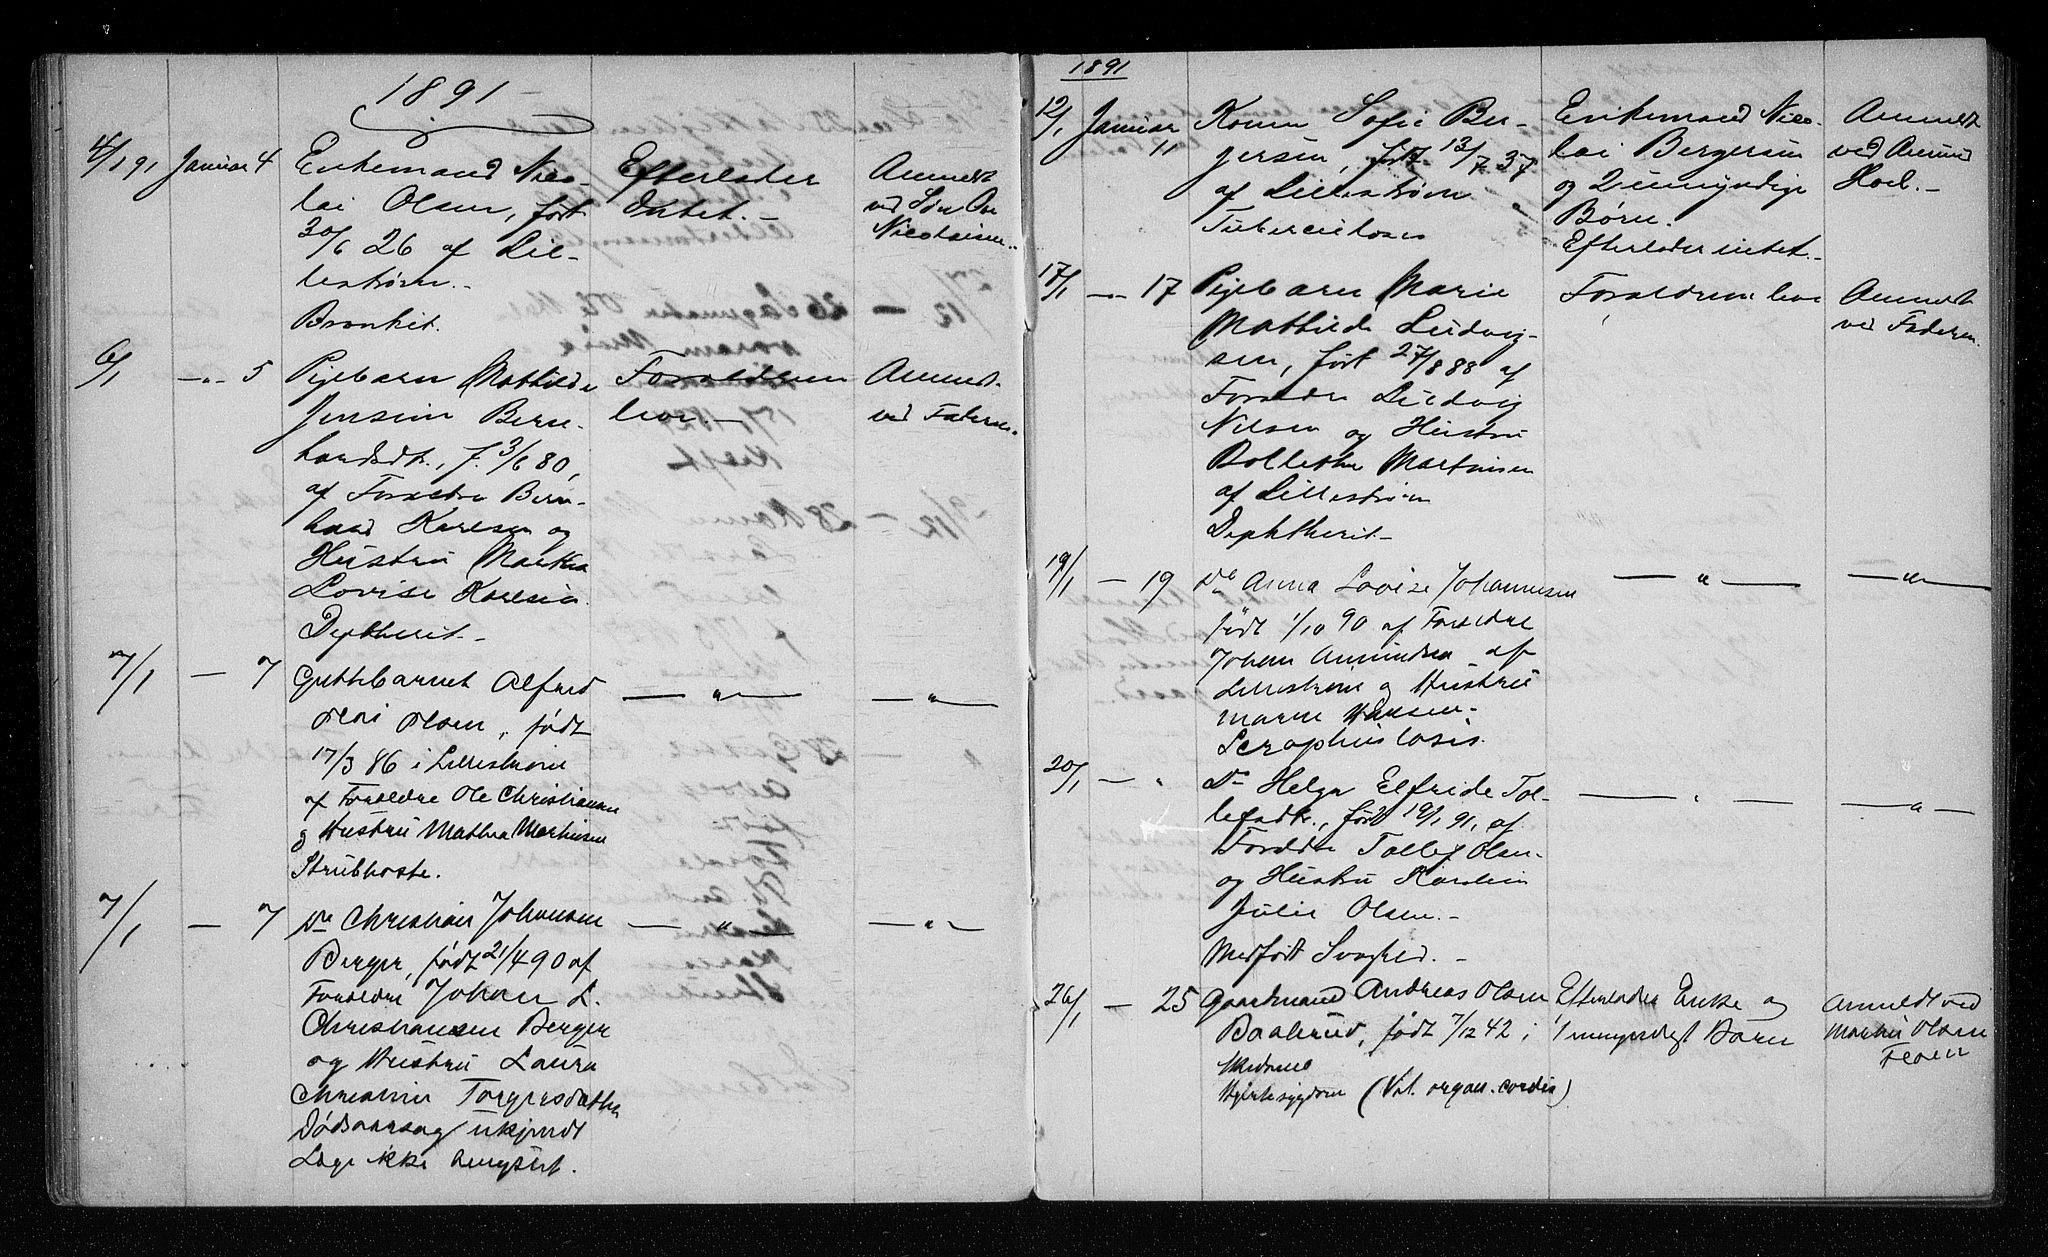 1891
4/1 91 Januar 4 Enkemand Nico- Efterlader Anmeldt
lai Olsen, født Intet. ved Søn Ole
30/6 26 af Lil- Nicolaisen
lestrøm.
Bronkit.
6/1 -"- 5 Pigebarn Mathilde Forældrene Anmeldt
Jensine Bern- lever. ved Faderen
hardsdtr., f. 3/6 80,
af Forældre Bern-
hard Karlsen og
Hustru Martha
Lovise Karlsen.
Diphtherit.
7/1 — 7 Guttebarnet Alfred — " — — " —
Olai Olsen, født
17/3 86 i Lillestrøm
af Forældre Ole Christiansen
og Hustru Mathea Martinsen
Strubhoste.
7/1 — 7 Do Christian Johansen — " — — " —
Berger, født 21/4 90 af
Forældre Johan L.
Christiansen Berger
og Hustru Laura
Christine Torgersdatter
Dødsaarsag ukjendt
Læge ikke benyttet.
1891
12/1 Januar 11 Konen Sofie Ber- Enkemand Nico- Anmeldt
gersen, født 13/7 37 lai Bergersen ved Amund
af Lillestrøm og 2 umyndige Hoel.
Tuberculoses Børn.
Efterlader intet.
17/1 — 17 Pigebarn Marie Forældrene lever Anmeldt
Mathilde Ludvig- ved Faderen
sen, født 27/8 88 af
Forældre Ludvig
Nilsen og Hustru
Bollethe Martinsen
af Lillestrøm
Diphtherit
19/1 — 19 Do Anna Lovise Johannesen — " — — " —
født 1/10 90 af Forældre
Johan Amundsen af
Lillestrøm og Hustru
Maren Hansen.
Scrophulosis.
20/1 — " Do Helga Elfride Tol- — " — — " —
lefsdtr., født 19/1 91, af
Forældre Tollef Olsen
og Hustru Karoline
Julie Olsen.
Medfødt Svaghed.
26/1 — 25 Gaardmand Andreas Olsen Efterlader Enke og Anmeldt ved
Baalsrud, født 7/12 42 i 1 umyndigt Barn Martin Olsen
Skedsmo Flaen
Hjertesygdom (Vit. organ. cordis)